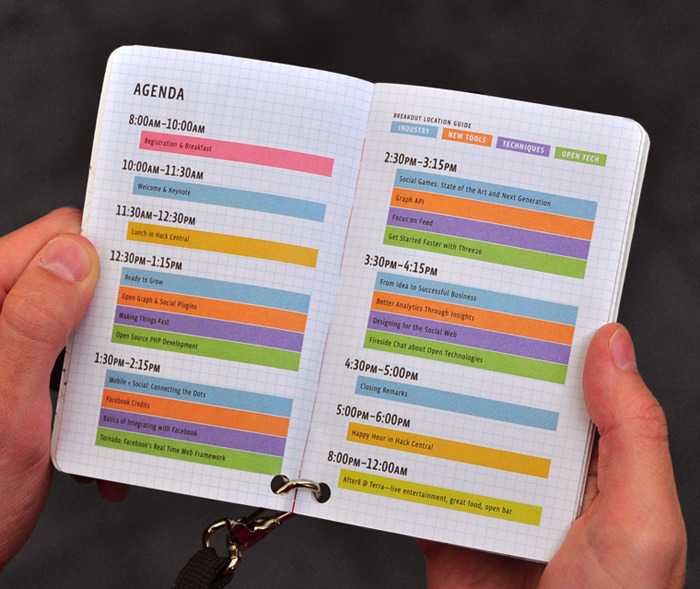 AGENDA
8:00AM–10:00AM
Registration & Breakfast
10:00AM–11:30AM
Welcome & Keynote
11:30AM–12:30PM
Lunch in Hack Central
12:30PM–1:15PM
Ready to Grow
Open Graph & Social Plugins
Making Things Fast
Open Source PHP Development
1:30PM–2:15PM
Mobile + Social: Connecting the Dots
Facebook Credits
Basics of Integrating with Facebook
Tornado: Facebook's Real Time Web Framework
BREAKOUT LOCATION GUIDE
INDUSTRY NEW TOOLS TECHNIQUES OPEN TECH
2:30PM–3:15PM
Social Games: State of the Art and Next Generation
Graph API
Focus on Feed
Get Started Faster with Three20
3:30PM–4:15PM
From Idea to Successful Business
Better Analytics Through Insights
Designing for the Social Web
Fireside Chat about Open Technologies
4:30PM–5:00PM
Closing Remarks
5:00PM–6:00PM
Happy Hour in Hack Central
8:00PM–12:00AM
After8 @ Terra—live entertainment, great food, open bar